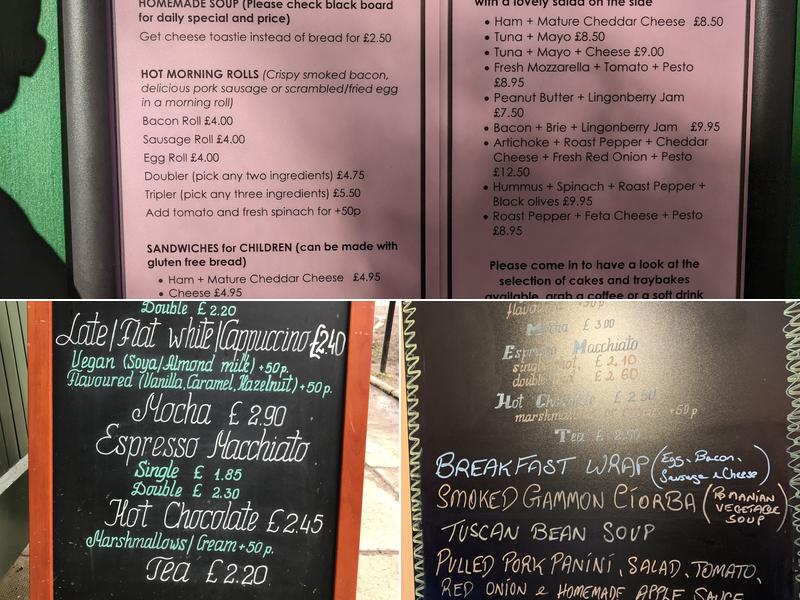 HOMEMADE SOUP (Please check black board
for daily special and price)
Get cheese toastie instead of bread for £2.50
HOT MORNING ROLLS (Crispy smoked bacon,
delicious pork sausage or scrambled/fried egg
in a morning roll)
Bacon Roll £4.00
Sausage Roll £4.00
Egg Roll £4.00
Doubler (pick any two ingredients) £4.75
Tripler (pick any three ingredients) £5.50
Add tomato and fresh spinach for +50p
SANDWICHES for CHILDREN (can be made with
gluten free bread)
• Ham + Mature Cheddar Cheese £4.95
• Cheese £4.95
with a lovely salad on the side
• Ham + Mature Cheddar Cheese £8.50
• Tuna + Mayo £8.50
• Tuna + Mayo + Cheese £9.00
• Fresh Mozzarella + Tomato + Pesto
£8.95
• Peanut Butter + Lingonberry Jam
£7.50
• Bacon + Brie + Lingonberry Jam £9.95
• Artichoke + Roast Pepper + Cheddar
Cheese + Fresh Red Onion + Pesto
£12.50
• Hummus + Spinach + Roast Pepper +
Black olives £9.95
• Roast Pepper + Feta Cheese + Pesto
£8.95
Please come in to have a look at the
selection of cakes and traybakes
available, grab a coffee or a soft drink
Double £ 2.20
Late/Flat white/Cappuccino £2.40
Vegan (Soya/Almond milk) +50p.
Flavoured (Vanilla, Caramel, Hazelnut) +50p.
Mocha £ 2.90
Espresso Macchiato
Single £ 1.85
Double £ 2.30
Hot Chocolate £2.45
Marshmallows/Cream +50p.
Tea £2.20
Mocha £ 3.00
Espresso Macchiato
single £ 2.10
double £ 2.60
Hot Chocolate £ 2.50
+50p
Tea £
BREAKFAST WRAP (Egg, Bacon,
Sausage & Cheese)
SMOKED GAMMON CIORBA (ROMANIAN
VEGETABLE
SOUP)
TUSCAN BEAN SOUP
PULLED PORK PANINI, SALAD, TOMATO,
RED ONION & HOMEMADE APPLE SAUCE